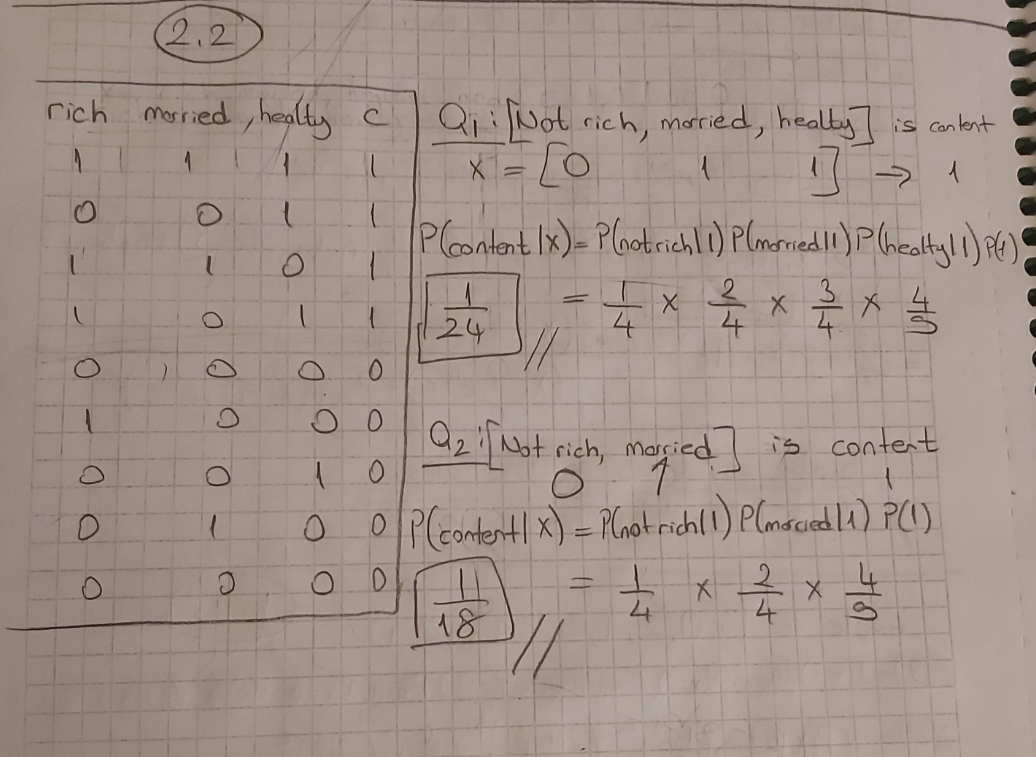 2.2
rich married, healty c
1 1 1 1
0 0 1 1
1 1 0 1
1 0 1 1
0 , 0 0 0
1 0 0 0
0 0 1 0
0 1 0 0
0 0 0 0
Q1: [Not rich, married, healty] is content
x = [0 1 1] → 1
P(content|x) = P(not rich|1) P(married|1) P(healty|1) P(1)
1/24 = 1/4 x 2/4 x 3/4 x 4/9
Q2: [Not rich, married] is content
0 1 1
P(content|x) = P(not rich|1) P(married|1) P(1)
1/18 = 1/4 x 2/4 x 4/9